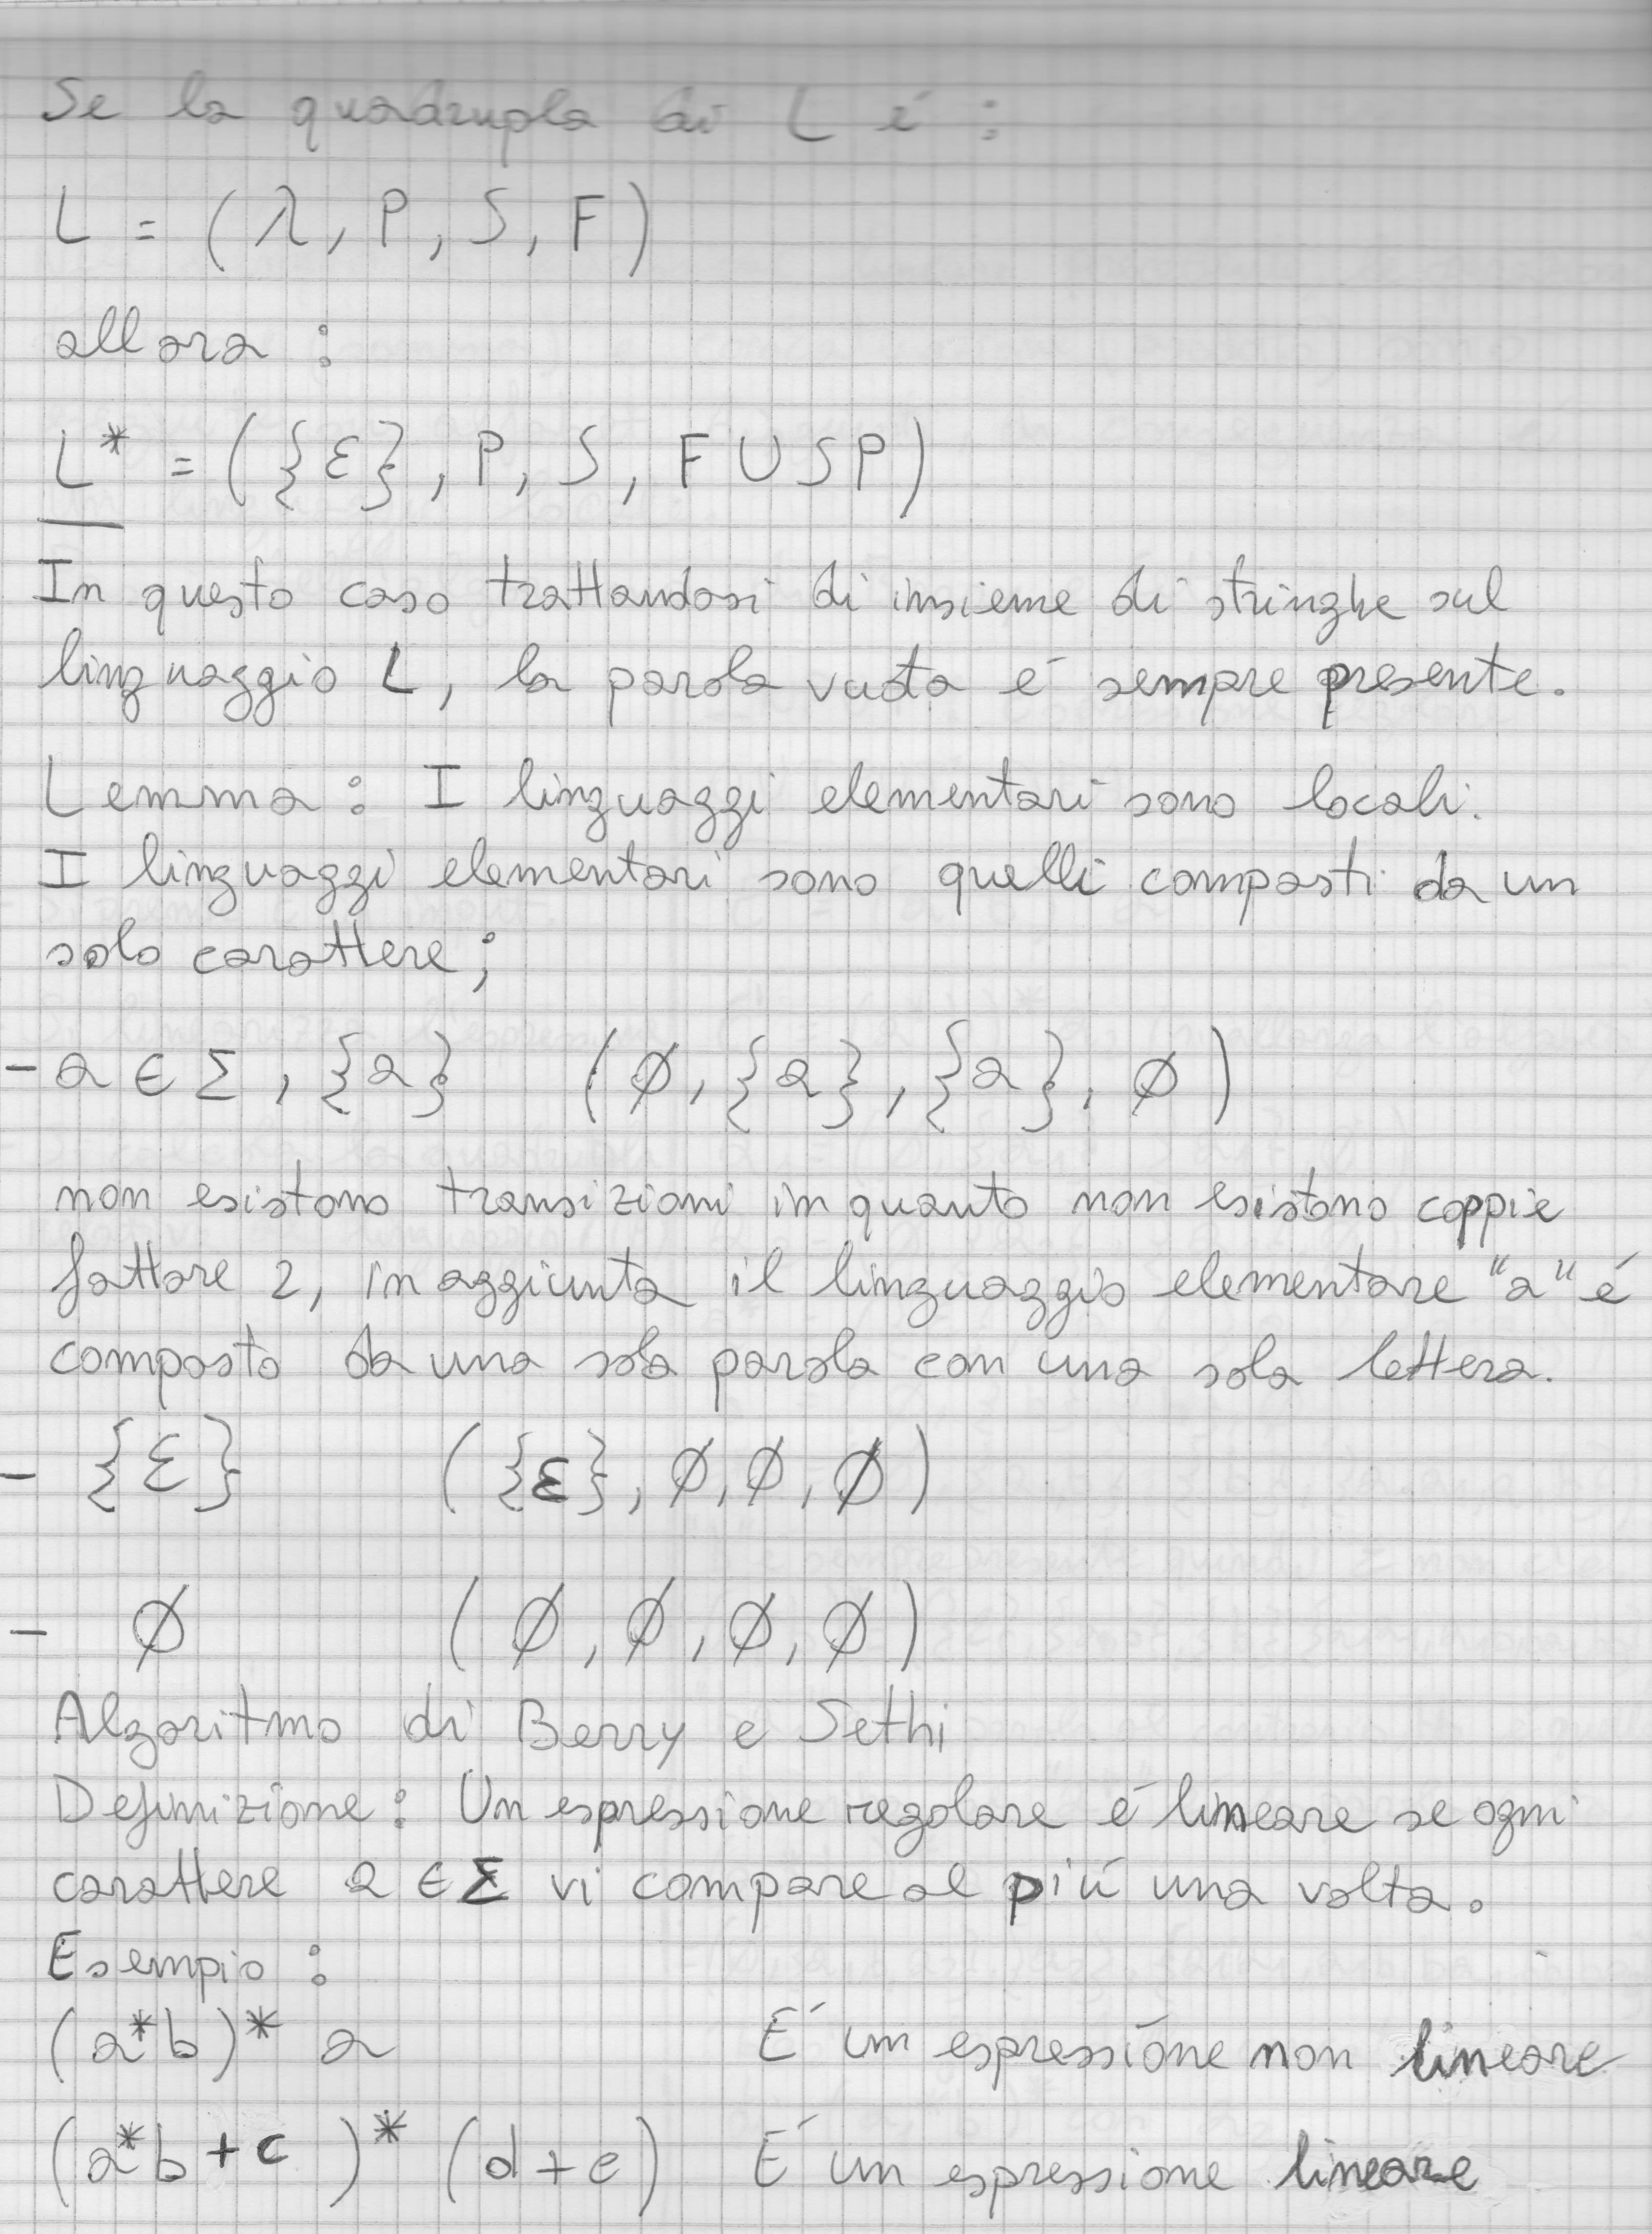 Se la quadrupla di L é :
L = ( λ, P, S, F )
allora :
L* = ( {ε}, P, S, F ∪ SP )
In questo caso trattandosi di insieme di stringhe sul
linguaggio L, la parola vuota é sempre presente.
Lemma : I linguaggi elementari sono locali.
I linguaggi elementari sono quelli composti da un
solo carattere ;
- a ∈ Σ, {a} ( ∅, {a}, {a}, ∅ )
non esistono transizioni in quanto non esistono coppie
fattore 2, in aggiunta il linguaggio elementare "a" é
composto da una sola parola con una sola lettera.
- {ε} ( {ε}, ∅, ∅, ∅ )
- ∅ ( ∅, ∅, ∅, ∅ )
Algoritmo di Berry e Sethi
Definizione : Un espressione regolare é lineare se ogni
carattere a ∈ Σ vi compare al piú una volta.
Esempio :
(a*b)* a É un espressione non lineare
(a*b+c )* (d+e) É un espressione lineare